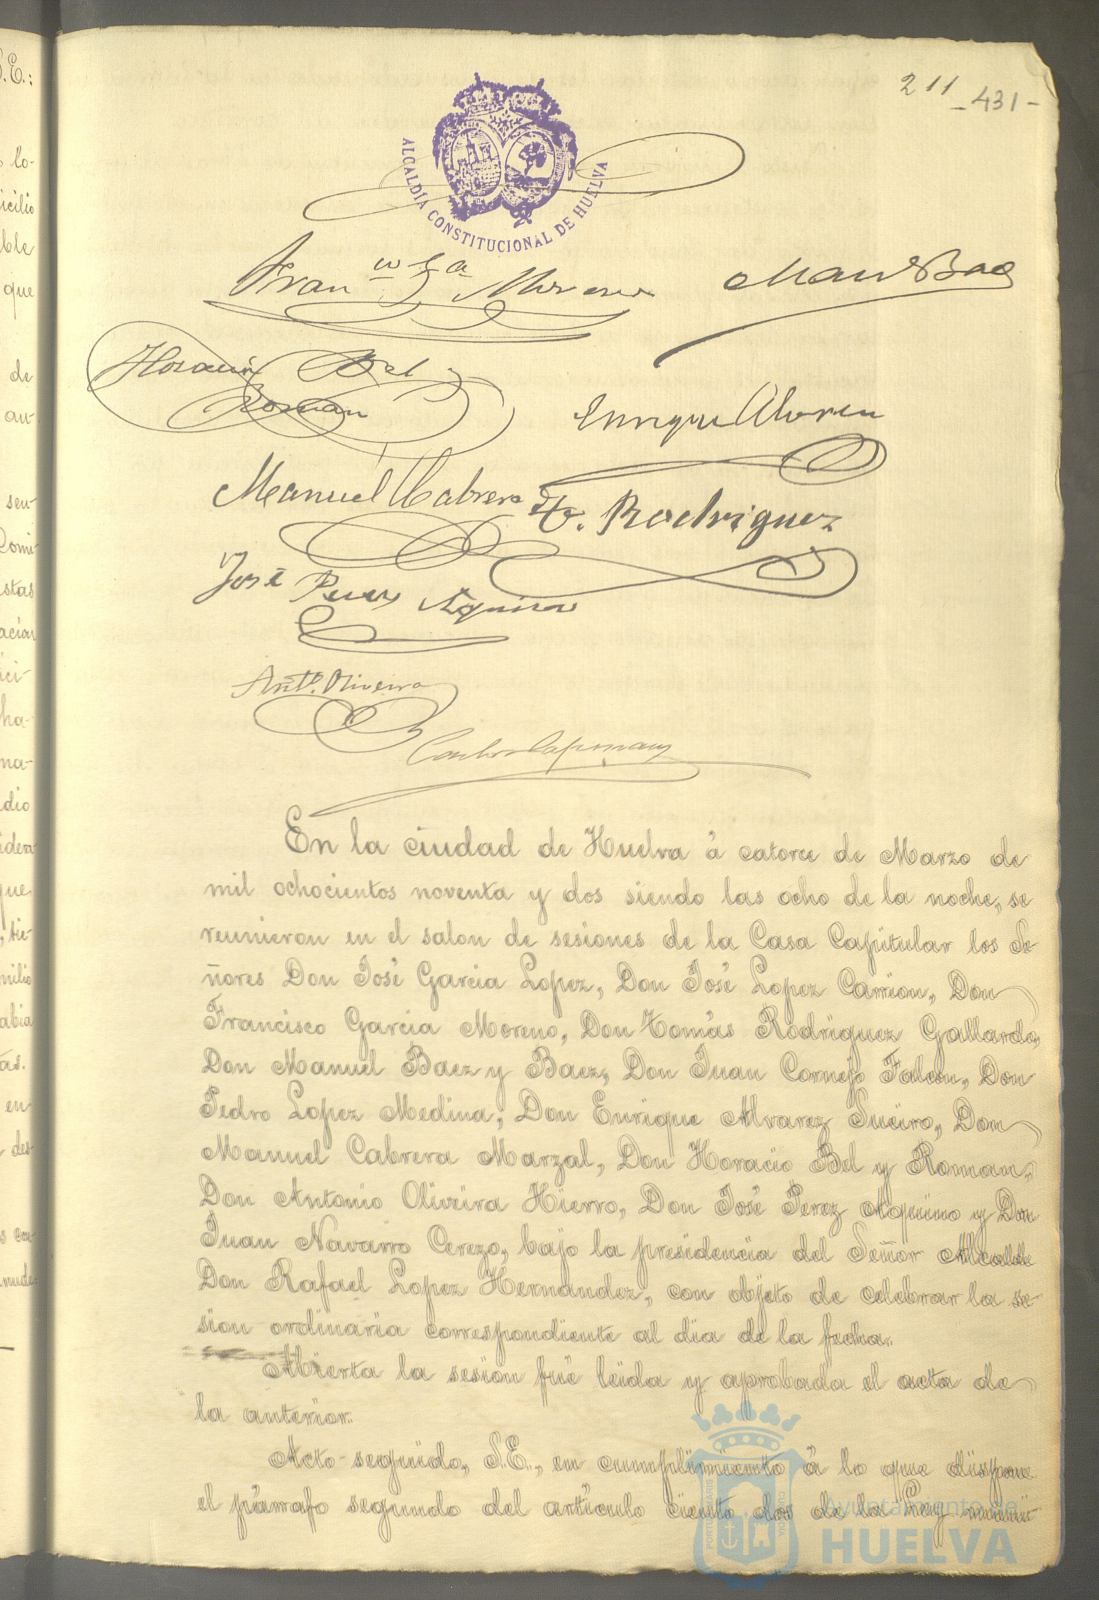 211
-431-
ALCALDÍA CONSTITUCIONAL DE HUELVA
Fran.co G.a Moreno
Man.l Baez
Horacio Bel y
Roman
Enrique Alvarez
Manuel Cabrera
To. Rodriguez
José Perez Aquino
Ant.o Oliveira
En la ciudad de Huelva á catorce de Marzo de
mil ochocientos noventa y dos siendo las ocho de la noche, se
reunieron en el salon de sesiones de la Casa Capitular los Se-
ñores Don José Garcia Lopez, Don José Lopez Carrion, Don
Francisco Garcia Moreno, Don Tomás Rodriguez Gallardo,
Don Manuel Baez y Baez, Don Juan Cornejo Falcon, Don
Pedro Lopez Medina, Don Enrique Alvarez Sueiro, Don
Manuel Cabrera Marzal, Don Horacio Bel y Roman,
Don Antonio Oliveira Hierro, Don José Perez Aquino y Don
Juan Navarro Cerezo, bajo la presidencia del Señor Alcalde
Don Rafael Lopez Hernandez, con objeto de celebrar la se-
sion ordinaria correspondiente al dia de la fecha.
Abierta la sesion fué leida y aprobada el acta de
la anterior.
Acto seguido, S.E., en cumplimiento á lo que dispone
el párrafo segundo del artículo ciento dos de la Ley munici-
Ayuntamiento de
HUELVA